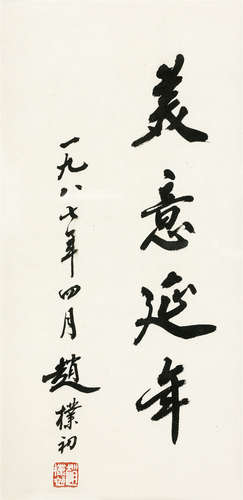 美意延年
一九八七年四月趙樸初